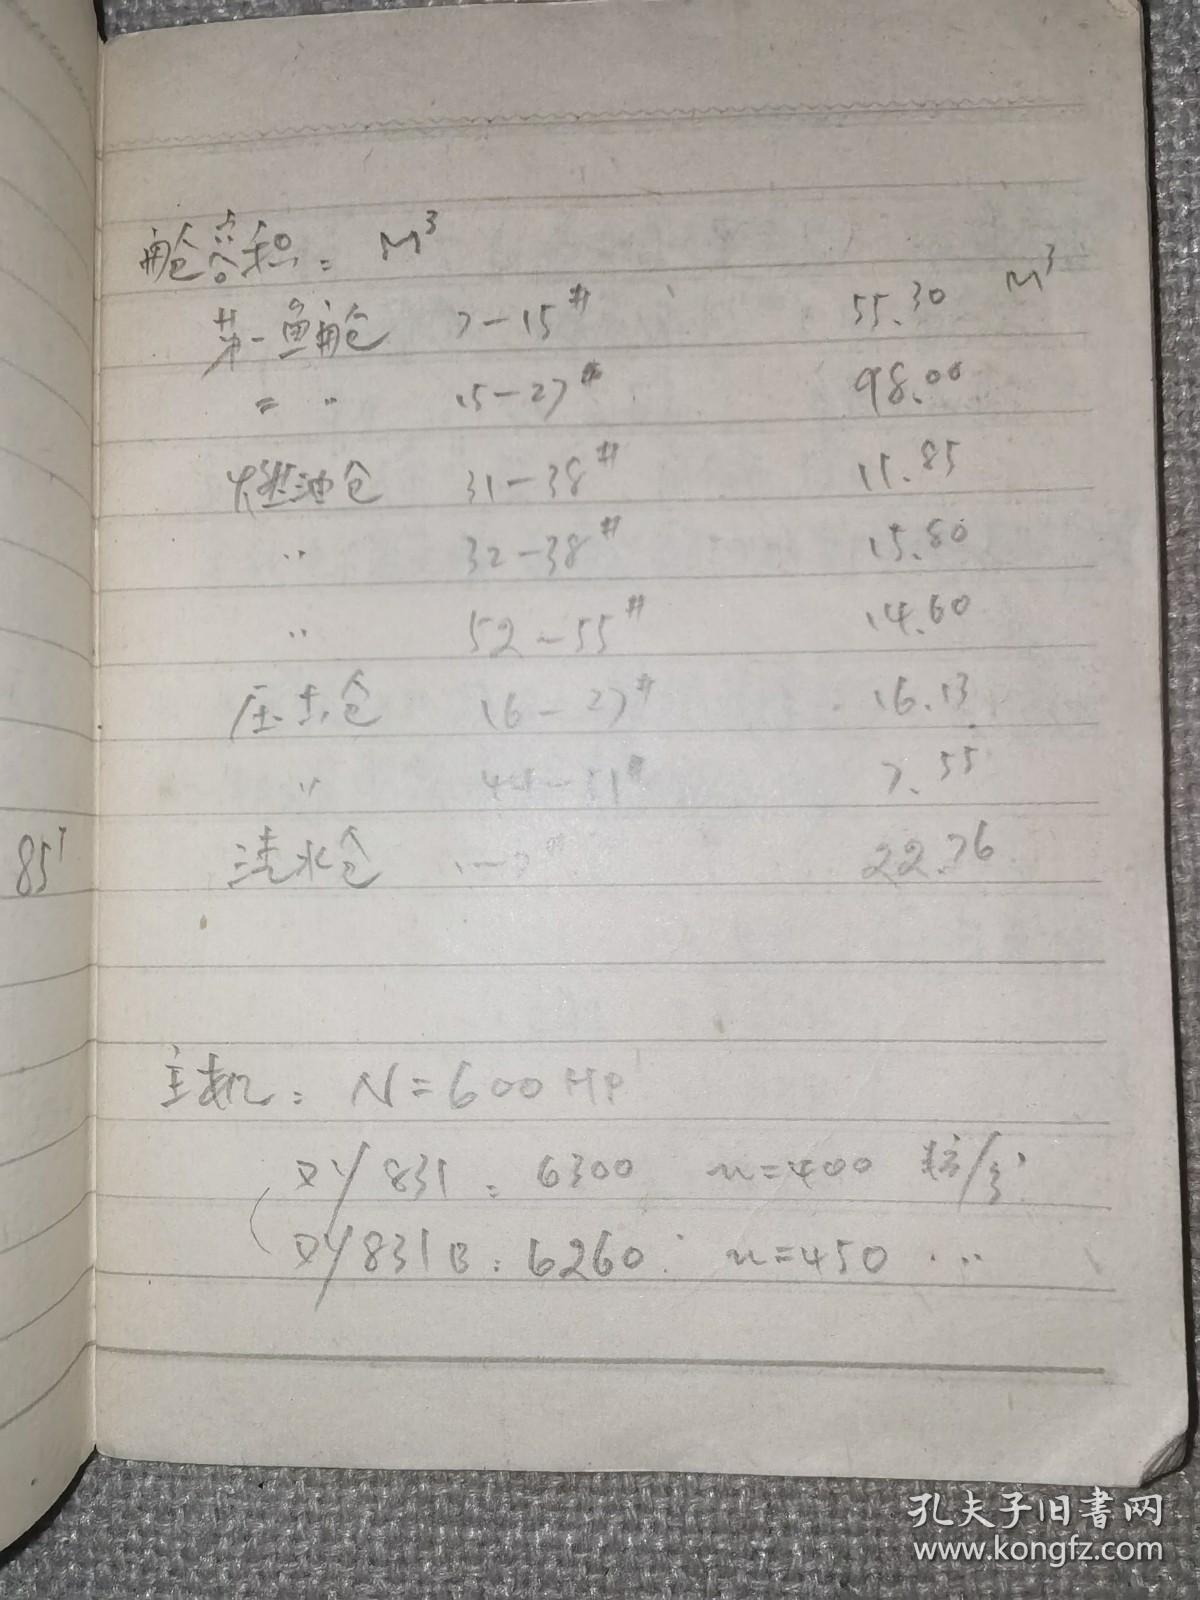 舱容积: M³
M³
第一鱼舱 7-15# 55.30
= 〃 15-27# 98.00
燃油仓 31-38# 11.85
〃 32-38# 15.80
〃 52-55# 14.60
压水仓 16-27# 16.13
〃 7.55
清水仓 22.76
85T
主机: N=600HP
831: 6300 n=400 转/分
831B: 6260 n=450 〃
孔夫子旧书网
www.kongfz.com